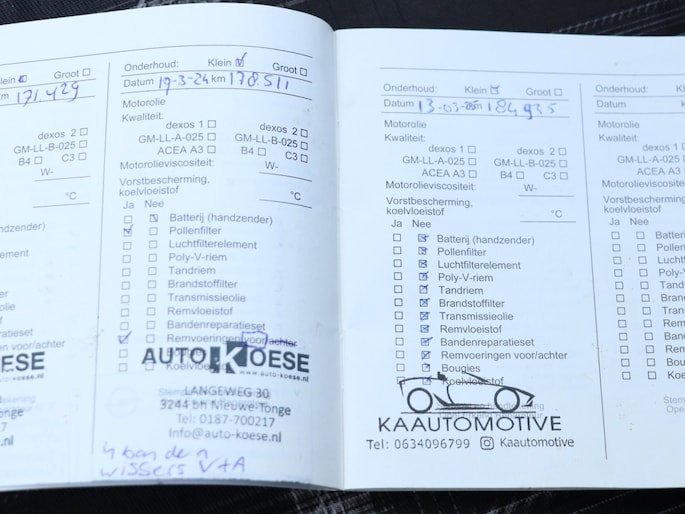 lein Groot
m 171.429
dexos 2
GM-LL-B-025
B4 C3
W-
°C
ndzender)
ement
er
e
atieset
n voor/achter
OESE
Tonge
nl
Onderhoud: Klein Groot
Datum 19-3-24 km 178.511
Motorolie
Kwaliteit:
dexos 1 dexos 2
GM-LL-A-025 GM-LL-B-025
ACEA A3 B4 C3
Motorolieviscositeit: W-
Vorstbescherming,
koelvloeistof °C
Ja Nee
Batterij (handzender)
Pollenfilter
Luchtfilterelement
Poly-V-riem
Tandriem
Brandstoffilter
Transmissieolie
Remvloeistof
Bandenreparatieset
Remvoeringen voor/achter
AUTO KOESE
www.auto-koese.nl
LANGEWEG 30
3244 bh Nieuwe-Tonge
Tel: 0187-700217
Info@auto-koese.nl
4 banden
wissers V+A
Onderhoud: Klein Groot
Datum 13-03-25 km 184935
Motorolie
Kwaliteit:
dexos 1 dexos 2
GM-LL-A-025 GM-LL-B-025
ACEA A3 B4 C3
Motorolieviscositeit: W-
Vorstbescherming,
koelvloeistof °C
Ja Nee
Batterij (handzender)
Pollenfilter
Luchtfilterelement
Poly-V-riem
Tandriem
Brandstoffilter
Transmissieolie
Remvloeistof
Bandenreparatieset
Remvoeringen voor/achter
Bougies
Koelvloeistof
KAAUTOMOTIVE
Tel: 0634096799 Kaautomotive
Onderhoud: Kle
Datum k
Motorolie
Kwaliteit:
dexos 1
GM-LL-A-025
ACEA A3
Motorolieviscositeit:
Vorstbescherming,
koelvloeistof
Ja Nee
Batterij
Pollenf
Luchtf
Poly-V
Tand
Bran
Tran
Rem
Ban
Rem
Bou
Koe
Stem
Ope